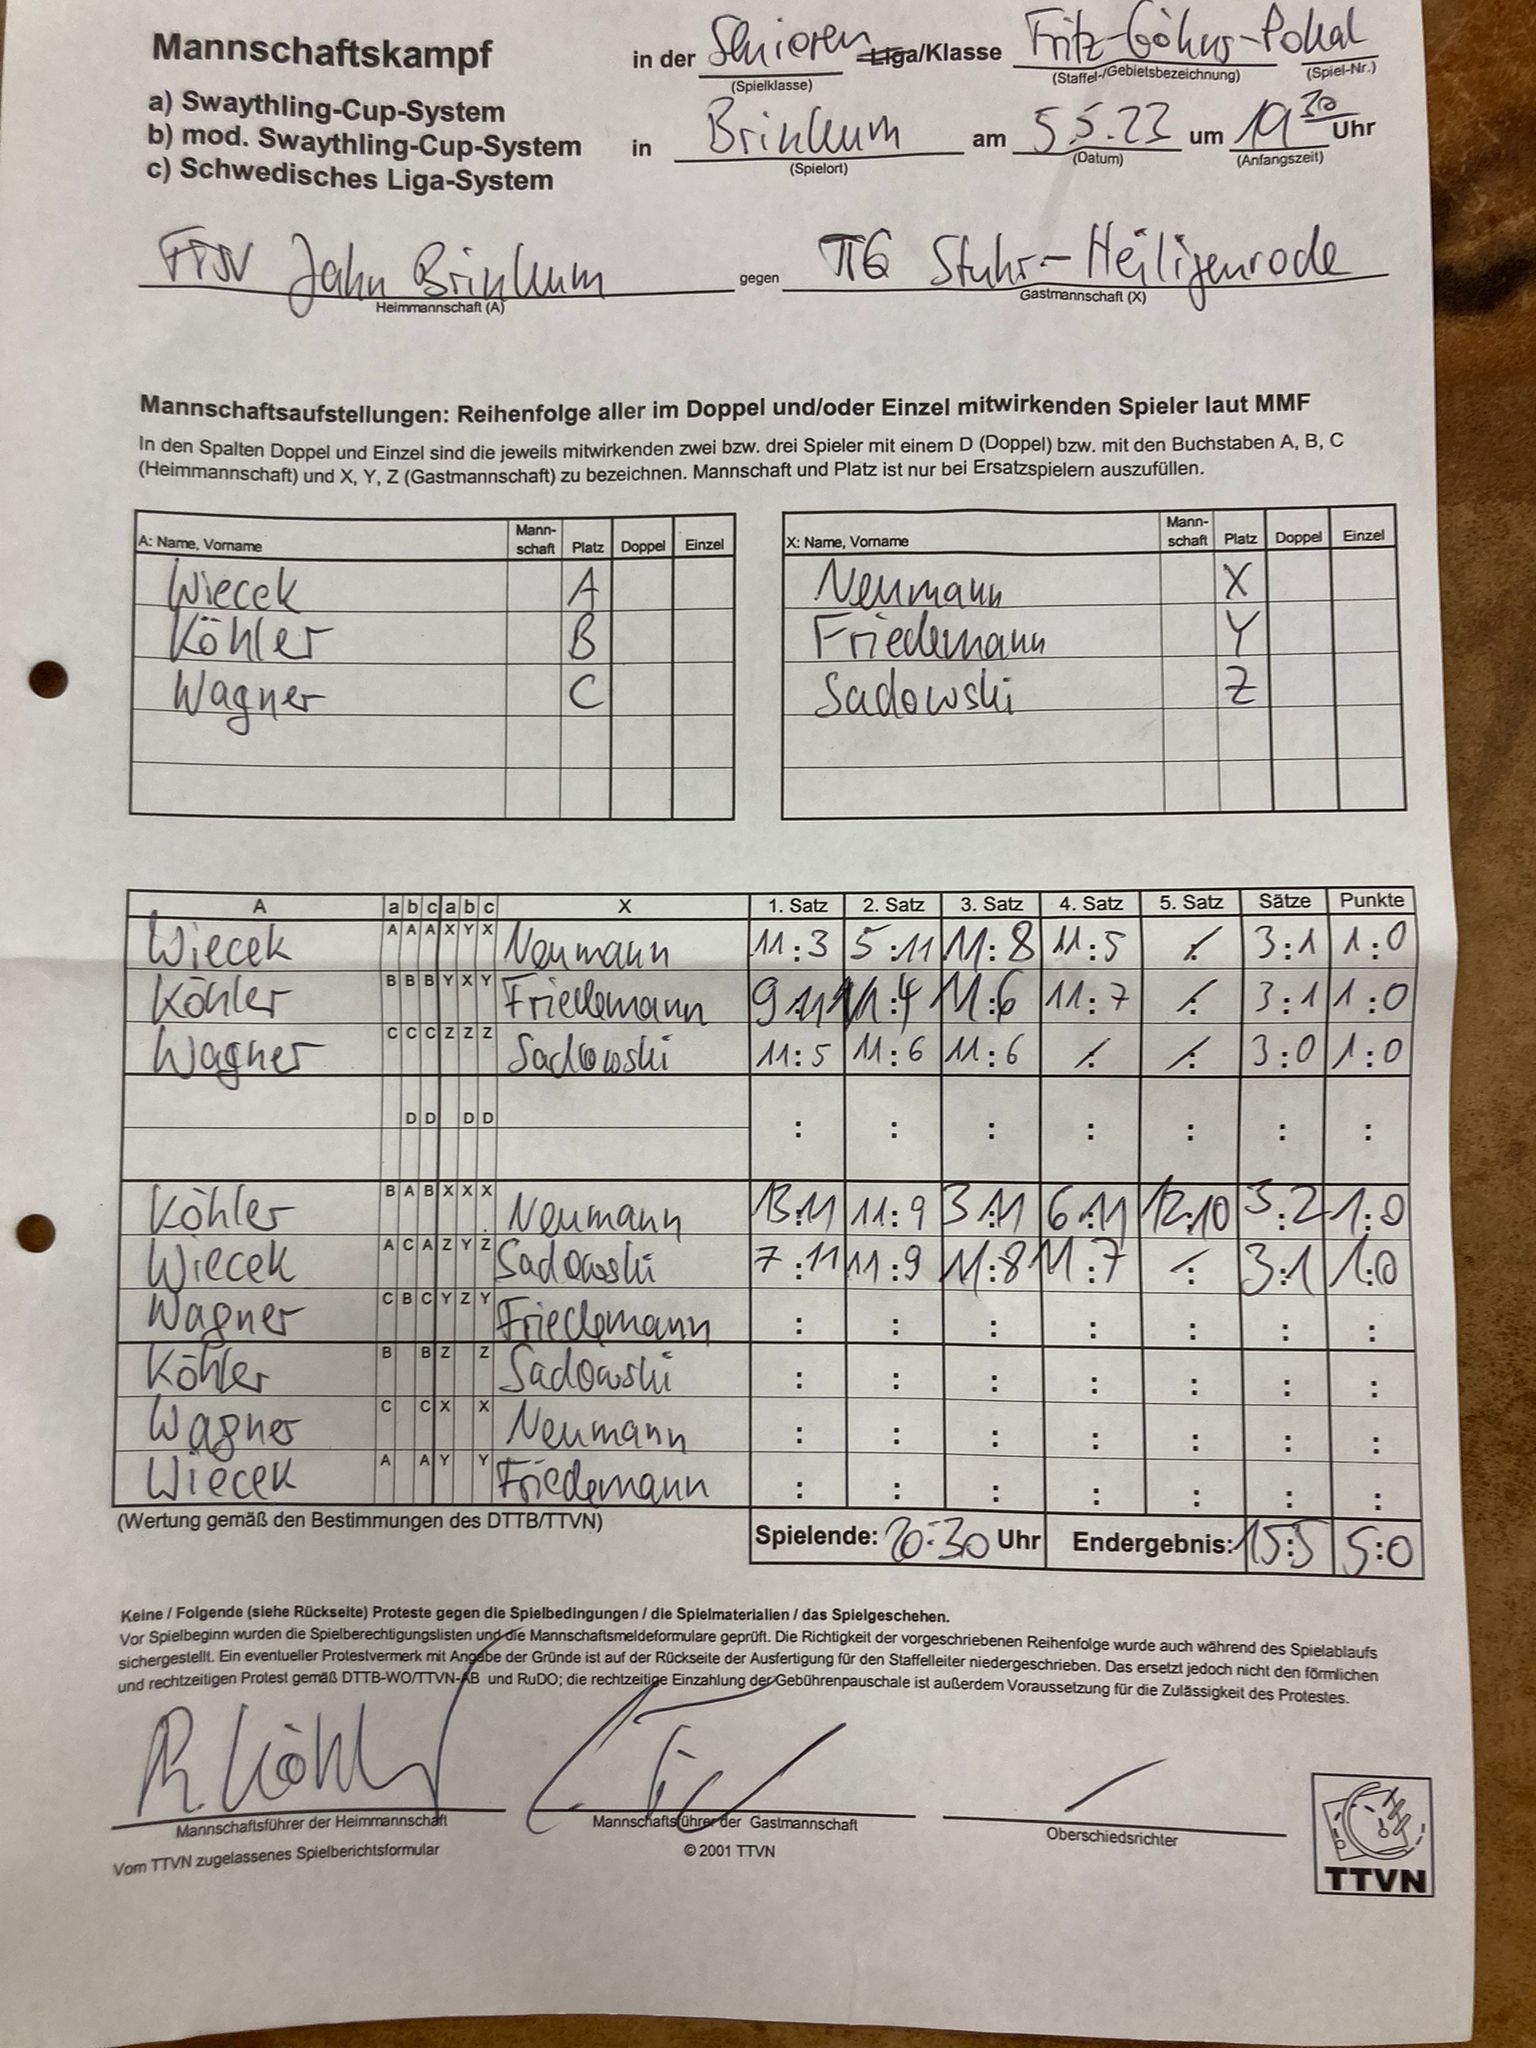 Mannschaftskampf in der Senioren Liga/Klasse Fritz-Göhns-Pokal
(Spielklasse) (Staffel-/Gebietsbezeichnung) (Spiel-Nr.)
a) Swaythling-Cup-System
b) mod. Swaythling-Cup-System in Brinkum am 5.5.23 um 19 30 Uhr
(Spielort) (Datum) (Anfangszeit)
c) Schwedisches Liga-System
FTSV Jahn Brinkum gegen TTG Stuhr-Heiligenrode
Heimmannschaft (A) Gastmannschaft (X)
Mannschaftsaufstellungen: Reihenfolge aller im Doppel und/oder Einzel mitwirkenden Spieler laut MMF
In den Spalten Doppel und Einzel sind die jeweils mitwirkenden zwei bzw. drei Spieler mit einem D (Doppel) bzw. mit den Buchstaben A, B, C
(Heimmannschaft) und X, Y, Z (Gastmannschaft) zu bezeichnen. Mannschaft und Platz ist nur bei Ersatzspielern auszufüllen.
A: Name, Vorname Mann-schaft Platz Doppel Einzel X: Name, Vorname Mann-schaft Platz Doppel Einzel
Wiecek A Neumann X
Köhler B Friedemann Y
Wagner C Sadowski Z
A a b c a b c X 1. Satz 2. Satz 3. Satz 4. Satz 5. Satz Sätze Punkte
Wiecek A A A X Y X Neumann 11:3 5:11 11:8 11:5 : 3:1 1:0
Köhler B B B Y X Y Friedemann 9:11 11:4 11:6 11:7 : 3:1 1:0
Wagner C C C Z Z Z Sadowski 11:5 11:6 11:6 : : 3:0 1:0
D D D D : : : : : : :
Köhler B A B X X X Neumann 13:11 11:9 3:11 6:11 12:10 3:2 1:0
Wiecek A C A Z Y Z Sadowski 7:11 11:9 11:8 11:7 : 3:1 1:0
Wagner C B C Y Z Y Friedemann : : : : : : :
Köhler B B Z Z Sadowski : : : : : : :
Wagner C C X X Neumann : : : : : : :
Wiecek A A Y Y Friedemann : : : : : : :
(Wertung gemäß den Bestimmungen des DTTB/TTVN) Spielende: 20:30 Uhr Endergebnis: 15:5 5:0
Keine / Folgende (siehe Rückseite) Proteste gegen die Spielbedingungen / die Spielmaterialien / das Spielgeschehen.
Vor Spielbeginn wurden die Spielberechtigungslisten und die Mannschaftsmeldeformulare geprüft. Die Richtigkeit der vorgeschriebenen Reihenfolge wurde auch während des Spielablaufs
sichergestellt. Ein eventueller Protestvermerk mit Angabe der Gründe ist auf der Rückseite der Ausfertigung für den Staffelleiter niedergeschrieben. Das ersetzt jedoch nicht den förmlichen
und rechtzeitigen Protest gemäß DTTB-WO/TTVN-AB und RuDO; die rechtzeitige Einzahlung der Gebührenpauschale ist außerdem Voraussetzung für die Zulässigkeit des Protestes.
R. Köhler
Mannschaftsführer der Heimmannschaft Mannschaftsführer der Gastmannschaft Oberschiedsrichter
Vom TTVN zugelassenes Spielberichtsformular © 2001 TTVN
TTVN